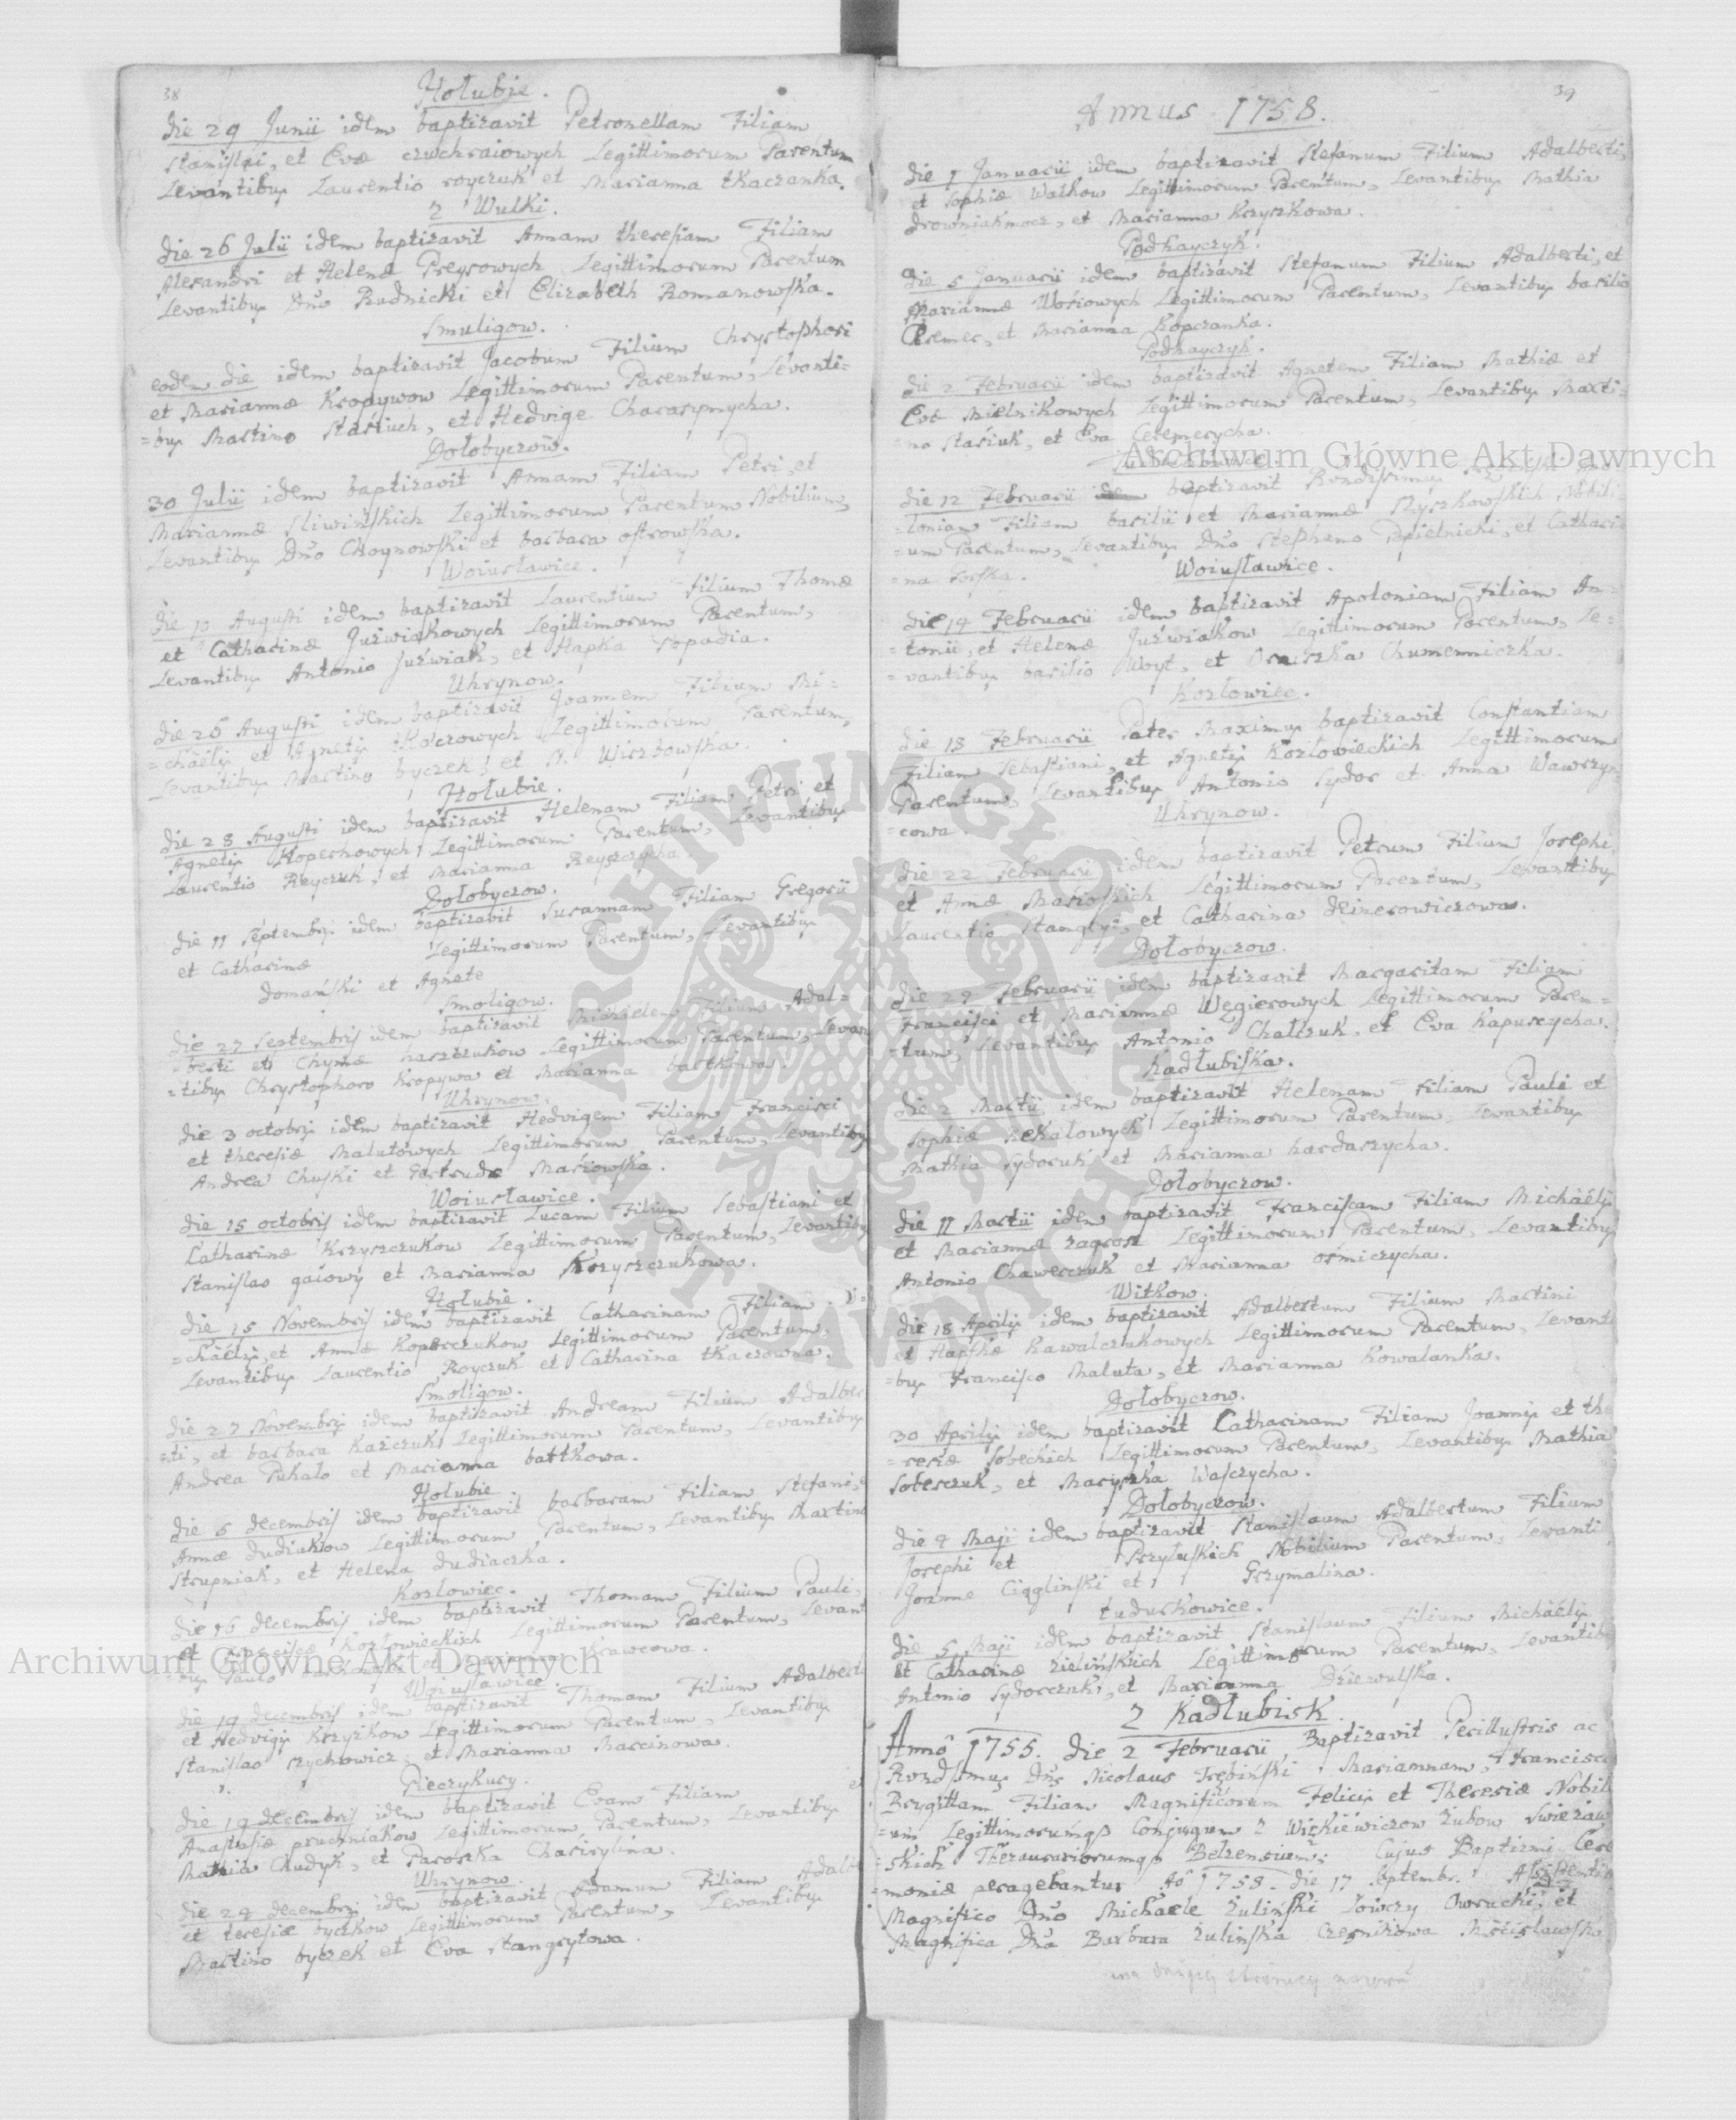 38
Hołubie.
die 29 Junii idem baptizavit Petronellam Filiam
Stanislai, et Evæ czuchraiowych Legittimorum Parentum
Levantibus Laurentio royczuk et Marianna tkaczanka.
z Wulki.
die 26 Julii idem baptizavit Annam theresiam Filiam
Alexandri et Helenæ Preyrowych Legittimorum Parentum
Levantibus Dno Rudnicki et Elizabeth Romanowska.
Smuligow.
eodem die idem baptizavit Jacobum Filium Chrystophori
et Mariannæ Kropywow Legittimorum Parentum, Levanti=
=bus Martino Stasiuch, et Hedvige Charasymycha.
Dołobyczow.
30 Julii idem baptizavit Annam Filiam Petri, et
Mariannæ Sliwinskich Legittimorum Parentum Nobilium,
Levantibus Dno Choynowski et barbara ostrowska.
Woiusławice.
die 10 Augusti idem baptizavit Laurentium Filium Thomæ
et Catharinæ Juzwiakowych Legittimorum Parentum,
Levantibus Antonio Juzwiak, et Hapka Popadia.
Uhrynow.
die 26 Augusti idem baptizavit Joannem Filium Mi=
=chaelis et Agnetis tkaczowych Legittimorum Parentum,
Levantibus Martino byczek, et N. Wierzbowska.
Hołubie.
die 28 Augusti idem baptizavit Helenam Filiam Petri et
Agnetis Koperkowych Legittimorum Parentum, Levantibus
Laurentio Reyczuk, et Marianna Reyszczycha.
Dołobyczow.
die 11 Septembris idem baptizavit Susannam Filiam Gregorii
et Catharinæ Legittimorum Parentum, Levantibus
domański et Agnete
Smoligow.
die 27 Septembris idem baptizavit Michaelem Filium Adal=
=berti et Chymæ harszczukow Legittimorum Parentum, Levan
=tibus Chrystophoro Kropywa et Marianna bartkowa.
Uhrynow.
die 3 octobris idem baptizavit Hedvigem Filiam Francisci
et theresiæ Malutowych Legittimorum Parentum, Levantibus
Andrea Chuski et Gertrude Mariowska.
Woiusławice.
die 15 octobris idem baptizavit Lucam Filium Sebastiani et
Catharinæ Krzyszczukow Legittimorum Parentum, Levantibus
Stanislao gaiowy et Marianna Krzyszczukowa.
Hołubie.
die 15 Novembris idem baptizavit Catharinam Filiam
=chaelis, et Annæ Koperczukow Legittimorum Parentum,
Levantibus Laurentio Royczuk et Catharina tkaczowna.
Smoligow.
die 27 Novembris idem baptizavit Andream Filium Adalber
=ti, et barbara Kazczuk Legittimorum Parentum, Levantibus
Andrea Pukalo et Marianna bartkowa.
Hołubie
die 6 decembris idem baptizavit barbaram Filiam Stefani,
Annæ dudiukow Legittimorum Parentum, Levantibus Martino
Strupniak, et Helena dudiaczka.
Kozlowiec.
die 16 decembris idem baptizavit Thomam Filium Pauli,
et Kozłowieckich Legittimorum Parentum, Levant
=bus Paulo et Marianna Krawcowa.
Woiusławice.
die 19 decembris idem baptizavit Thomam Filium Adalberti
et Hedvigis Krzyskow Legittimorum Parentum, Levantibus
Stanislao Szychowicz, et Marianna Marcinowa.
Pieczykury.
die 19 decembris idem baptizavit Evam Filiam
Anastasiæ pruczniakow Legittimorum Parentum, Levantibus
Mathia Chudyk, et Paroska Charisylina.
Uhrynow.
die 24 decembris idem baptizavit Adamum Filium Adalb
et teresiæ byczkow Legittimorum Parentum, Levantibus
Martino byczek et Eva Stangrytowa.
39
Annus 1758.
die 1 Januarii idem baptizavit Stefanum Filium Adalberti,
et Sophiæ Walkow Legittimorum Parentum, Levantibus Mathia
drowniakmocz, et Marianna Krzyszkowa.
Podhayczyk.
die 5 Januarii idem baptizavit Stefanum Filium Adalberti, et
Mariannæ Wosiowych Legittimorum Parentum, Levantibus basilio
Kremec, et Marianna Kopczanka.
Podhayczyk.
die 2 Februarii idem baptizavit Agnetem Filiam Mathiæ et
Evæ Mielnikowych Legittimorum Parentum, Levantibus Marti=
=no Stasiuk, et Eva Ceremerycha.
die 12 Februarii baptizavit Rvndissimus
=toniam Filiam basilii et Mariannæ Ryszkowskich Nobili
=um Parentum, Levantibus Dno Stephano Popielnicki, et Cathari=
=na
Woiusławice.
die 14 Februarii idem baptizavit Apoloniam Filiam An=
=tonii, et Helenæ Juzwiakow Legittimorum Parentum, Le=
=vantibus basilio Woyt, et Oruszka Chumenniczka.
Kozłowiec.
die 18 Februarii Pater Maximus baptizavit Constantiam
Filiam Sebastiani, et Agnetis Kozłowieckich Legittimorum
Parentum, Levantibus Antonio Sydor et Anna Wawrzyn
=cowa.
Uhrynow.
die 22 Februarii idem baptizavit Petrum Filium Josephi,
et Annæ Marioskich Legittimorum Parentum, Levantibus
Laurentio Stangryt, et Catharina deinerowiczowa.
Dołobyczow.
die 27 Februarii idem baptizavit Margaritam Filiam
Francisci et Mariannæ Wegierowych Legittimorum Paren=
=tum, Levantibus Antonio Chalczuk, et Eva Kapuscycha.
Kadłubiska.
die 2 Martii idem baptizavit Helenam Filiam Pauli et
Sophiæ Rekalowych Legittimorum Parentum, Levantibus
Mathia Sydoruk et Marianna hardaszycha.
Dołobyczow.
die 11 Martii idem baptizavit Franciscam Filiam Michaelis
et Mariannæ zagrosz Legittimorum Parentum, Levantibus
Antonio Chaweczuk et Marianna osmiczycha.
Witkow.
die 18 Aprilis idem baptizavit Adalbertum Filium Martini
et Hapskæ Kawalczukowych Legittimorum Parentum, Levanti
=bus Francisco Maluta, et Marianna Kowalanka.
Dołobyczow.
30 Aprilis idem baptizavit Catharinam Filiam Joannis et the
=resiæ Sobeckich Legittimorum Parentum, Levantibus Mathia
Soberczuk, et Maryszka Wasczycha.
Dołobyczow.
die 4 Maji idem baptizavit Stanislaum Adalbertum Filium
Josephi et Przyłuskich Nobilium Parentum, Levanti
Joanne Cigglinski et Grzymalina.
tuduskowice.
die 5 Maji idem baptizavit Stanislaum Filium Michaelis
et Catharinæ Zielińskich Legittimorum Parentum, Levantibus
Antonio Sydorczuk, et Marianna Dziewulska.
Z Kadłubisk
Anno 1755. die 2 Februarii Baptizavit Perillustris ac
Rvndssmus Dns Nicolaus Trębiński Mariannam, Francisc
Brygittam Filiam Magnificorum Felicis et Theresiæ Nobili
=um Legittimorumqs Conjugum z Wickiewiczow Zubow Swierzaw
=skich Thezaurariorumqs Belzensium; Cujus Baptizmi Cere
=moniæ peragebantur Aô 1758. die 17 Septembr. Assistenti
Magnifico Dno Michaele Zulinski Łowczy Owrucki, et
Magnifica Dna Barbara Zulinska Czesnikowa Mscislawska
na drugiey stronicy
Archiwum Główne Akt Dawnych
Archiwum Główne Akt Dawnych
ARCHIWUM GŁÓWNE AKT DAWNYCH